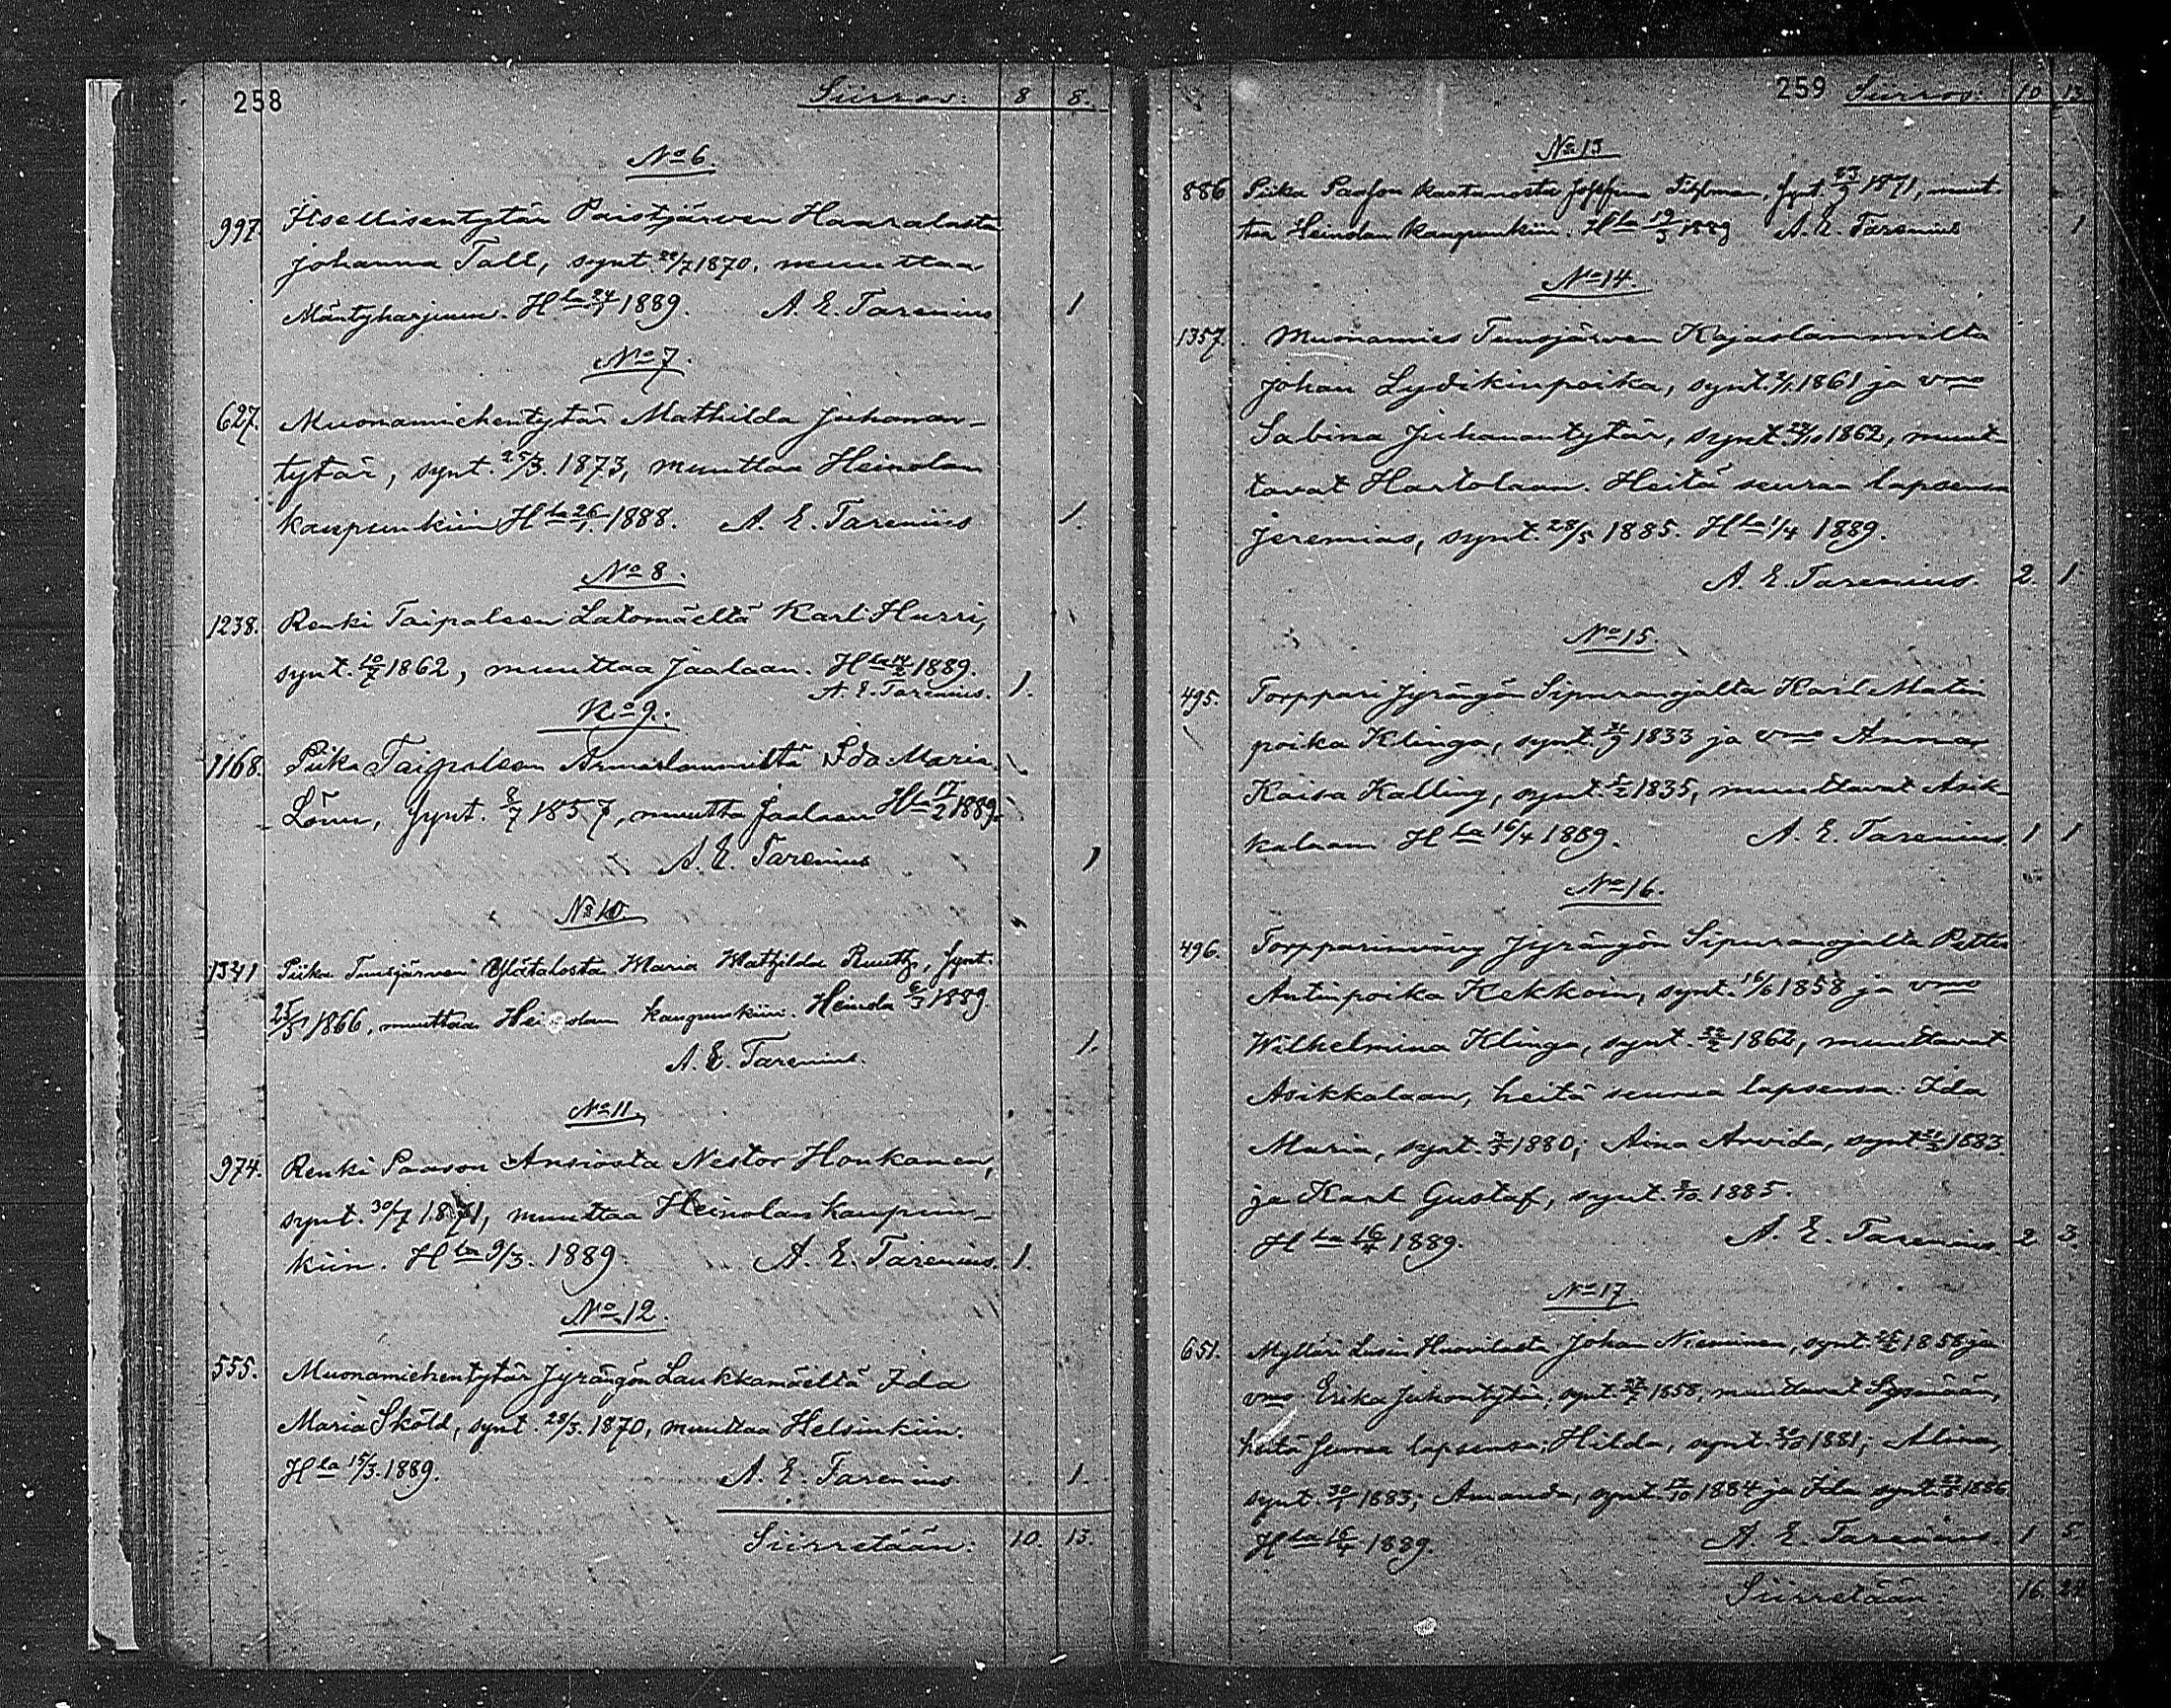 258
Siirros: 8 8.
No 6.
997. Itsellisentytär Paistjärven Haaralasta
Johanna Tall, synt. 1870, muuttaa
Mäntyharjuun. Hla 24/1 1889. A. E. Tarenius 1
No 7.
627. Muonamiehentytär Mathilda Juhanan-
tytär, synt. 25/3. 1873, muuttaa Heinolan
kaupunkiin Hla 26/1. 1888. A. E. Tarenius 1.
No 8.
1238. Renki Taipaleen Latomäeltä Karl Hurri,
synt. 10/7 1862, muuttaa Jaalaan. Hla 14/2 1889.
A. E. Tarenius. 1.
No 9.
1168. Piika Taipaleen Ida Maria
Lönn, synt. 8/7 1857, muutta Jaalaan Hla 17/2 1889.
A. E. Tarenius 1
No 10
1341 Piika Tuusjärven Ylätalosta Maria Mathilda Ruuth, synt.
25/5 1866, muuttaa Heinolan kaupunkiin. Heinola 6/3 1889.
A. E. Tarenius. 1.
No 11.
974. Renki Paason Ansiosta Nestor Honkanen,
synt. 30/7 1871, muuttaa Heinolan kaupun-
kiin. Hla 9/3. 1889. A. E. Tarenius. 1.
No 12.
555. Muonamiehentytär Jyrängön Laukkamäeltä Ida
Maria Sköld, synt. 28/3. 1870, muuttaa Helsinkiin.
Hla 15/3. 1889. A. E. Tarenius 1.
Siirretään: 10. 13.
259 Siirros: 10 13
No 13
886 Piika Paason Josefina synt. 1871, muut-
taa Heinolan kaupunkiin. Hla 19/3 1889 A. E. Tarenius 1
No 14.
1357. Muonamies Tuusjärven Kajaslammilta
Johan Lydikinpoika, synt. 1861 ja vmo
Sabina Juhanantytär, synt. 1862, muut-
tavat Hartolaan. Heitä seuraa lapsensa
Jeremias, synt. 28/5 1885. Hla 1/4 1889.
A. E. Tarenius. 2. 1.
No 15.
495. Torppari Jyrängön Sipuranojalta Karl Matin
poika Klinga, synt. 1833 ja vmo Anna
Kaisa Kalling, synt. 1835, muuttavat Asik-
kalaan Hla 16/4 1889. A. E. Tarenius. 1 1
No 16.
496. Torpparinvävy Jyrängön Sipuranojalta Petter
Antinpoika Kekkoin, synt. 16/6 1858 ja vmo
Wilhelmina Klinga, synt. 1862, muuttavat
Asikkalaan, heitä seuraa lapsensa: Ida
Maria, synt. 1880; Aina Arvida, synt. 1883.
ja Karl Gustaf, synt. 1885.
Hla 16/4 1889. A. E. Tarenius. 2 3.
No 17.
651. Mylläri Lusin Huovilasta Johan Nieminen, synt. 1858 ja
vmo Erika Juhontytär, synt. 1858, muuttavat Sysmään,
heitä seuraa lapsensa: Hilda, synt. 1881; Alina,
synt. 1883; Amanda, synt. 1884 ja Ida synt. 1886
Hla 16/4 1889. A. E. Tarenius. 1 5
Siirretään. 16.